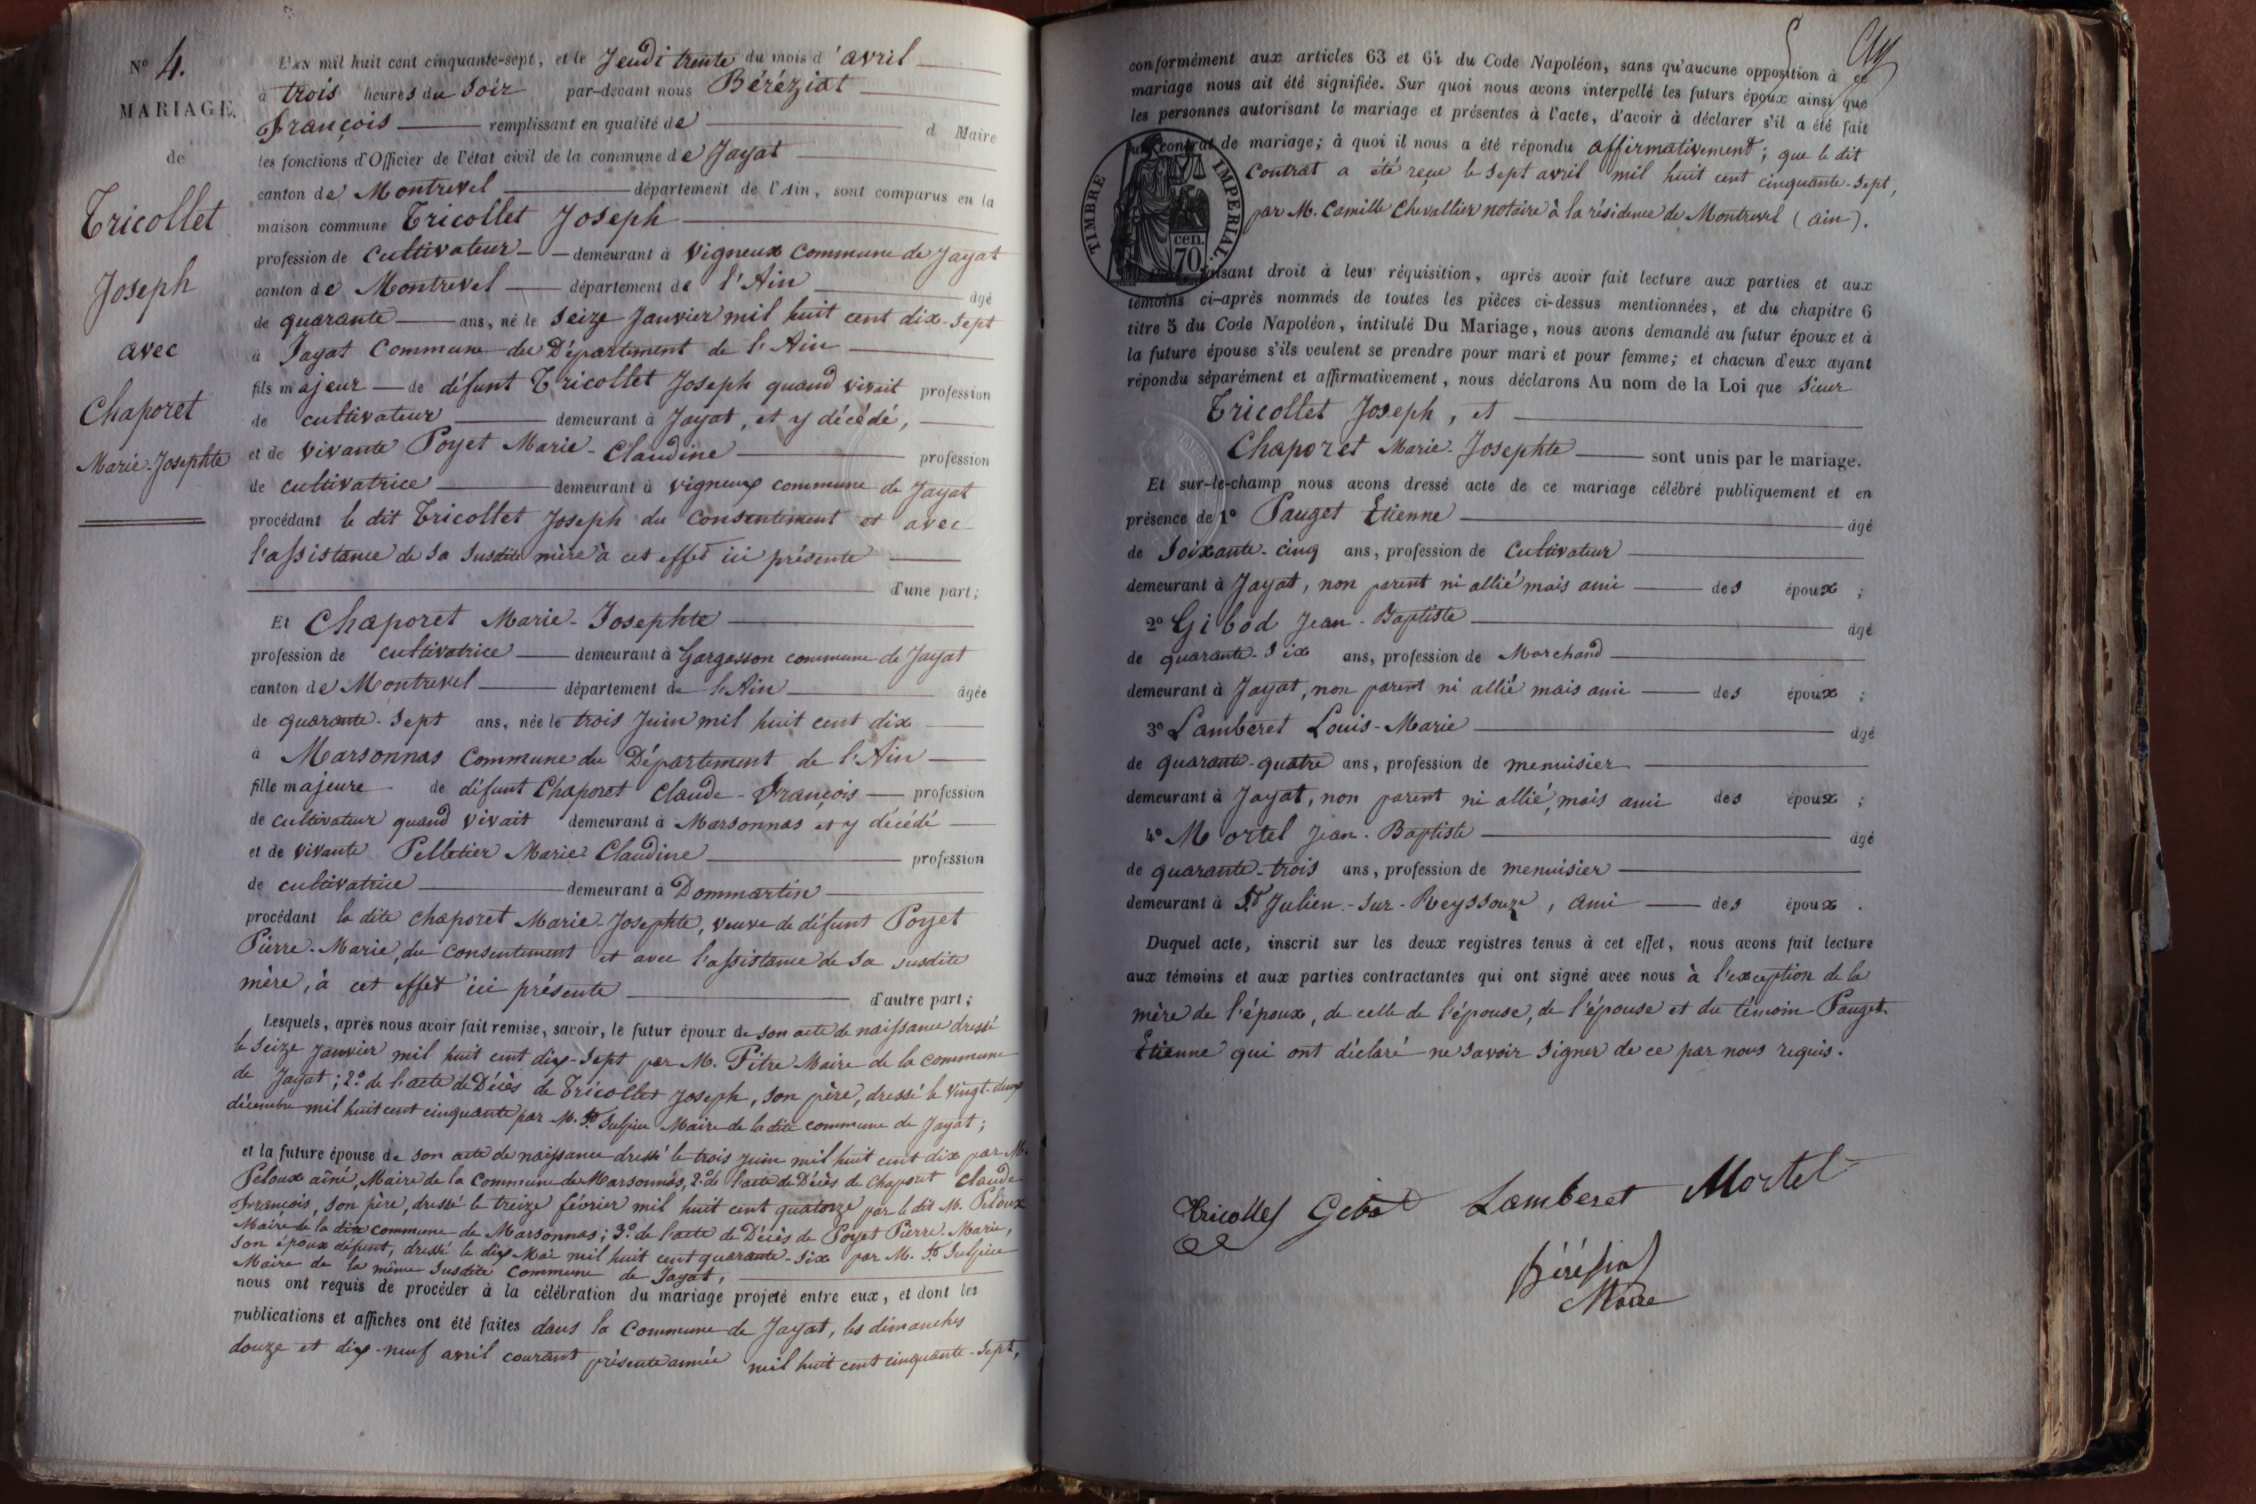 Nº 4.
MARIAGE
de
Tricollet
Joseph
avec
Chaporet
Marie-Josephte
L'AN mil huit cent cinquante-sept, et le Jeudi trente du mois d'avril
à trois heures du soir par-devant nous Béréziat
François remplissant en qualité de d Maire
les fonctions d'Officier de l'état civil de la commune de Jayat
canton de Montrevel département de l'Ain, sont comparus en la
maison commune Tricollet Joseph
profession de cultivateur demeurant à Vigneux commune de Jayat
canton de Montrevel département de l'Ain âgé
de quarante ans, né le seize Janvier mil huit cent dix-sept
à Jayat Commune du Département de l'Ain
fils majeur de défunt Tricollet Joseph quand vivait profession
de cultivateur demeurant à Jayat, et y décédé,
et de vivante Poyet Marie-Claudine profession
de cultivatrice demeurant à vigneux commune de Jayat
procédant le dit Tricollet Joseph du consentement et avec
l'assistance de sa susdite mère à cet effet ici présente
d'une part;
Et Chaporet Marie-Josephte
profession de cultivatrice demeurant à Gargasson commune de Jayat
canton de Montrevel département de l'Ain âgée
de quarante-sept ans, née le trois Juin mil huit cent dix
à Marsonnas Commune du Département de l'Ain
fille majeure de défunt Chaporet Claude-François profession
de cultivateur quand vivait demeurant à Marsonnas et y décédé
et de vivante Pelletier Marie Claudine profession
de cultivatrice demeurant à Dommartin
procédant la dite chaporet Marie-Josephte, veuve de défunt Poyet
Pierre-Marie, du consentement et avec l'assistance de sa susdite
mère, à cet effet ici présente d'autre part;
Lesquels, après nous avoir fait remise, savoir, le futur époux de son acte de naissance dressé
le seize Janvier mil huit cent dix-sept par M. Pitre Maire de la commune
de Jayat; 2º de l'acte de Décès de Tricollet Joseph, son père, dressé le vingt-deux
décembre mil huit cent cinquante par M. St Sulpice Maire de la dite commune de Jayat;
et la future épouse de son acte de naissance dressé le trois Juin mil huit cent dix par M.
Peloux aîné, Maire de la Commune de Marsonnas, 2º de l'acte de Décès de Chaporet Claude
François, son père, dressé le treize février mil huit cent quatorze par le dit M. Peloux
Maire de la dite commune de Marsonnas; 3º de l'acte de Décès de Poyet Pierre-Marie,
son époux défunt, dressé le dix Mai mil huit cent quarante-six par M. St Sulpice
Maire de la même susdite commune de Jayat;
nous ont requis de procéder à la célébration du mariage projeté entre eux, et dont les
publications et affiches ont été faites dans la Commune de Jayat, les dimanches
douze et dix-neuf avril courant présente année mil huit cent cinquante-sept,
conformément aux articles 63 et 64 du Code Napoléon, sans qu'aucune opposition à ce
mariage nous ait été signifiée. Sur quoi nous avons interpellé les futurs époux ainsi que
les personnes autorisant le mariage et présentes à l'acte, d'avoir à déclarer s'il a été fait
un contrat de mariage; à quoi il nous a été répondu affirmativement; que le dit
Contrat a été reçu le sept avril mil huit cent cinquante-sept,
par M. Camille Chevallier notaire à la résidence de Montrevel (ain).
TIMBRE IMPERIAL
70 cen.
faisant droit à leur réquisition, après avoir fait lecture aux parties et aux
témoins ci-après nommés de toutes les pièces ci-dessus mentionnées, et du chapitre 6
titre 5 du Code Napoléon, intitulé Du Mariage, nous avons demandé au futur époux et à
la future épouse s'ils veulent se prendre pour mari et pour femme; et chacun d'eux ayant
répondu séparément et affirmativement, nous déclarons Au nom de la Loi que sieur
Tricollet Joseph, et
Chaporet Marie-Josephte sont unis par le mariage.
Et sur-le-champ nous avons dressé acte de ce mariage célébré publiquement et en
présence de 1º Pauget Etienne âgé
de soixante-cinq ans, profession de Cultivateur
demeurant à Jayat, non parent ni allié mais ami des époux;
2º Gibod Jean-Baptiste âgé
de quarante-six ans, profession de Marchand
demeurant à Jayat, non parent ni allié mais ami des époux;
3º Lamberet Louis-Marie âgé
de quarante-quatre ans, profession de menuisier
demeurant à Jayat, non parent ni allié, mais ami des époux;
4º Mortel Jean-Baptiste âgé
de quarante-trois ans, profession de menuisier
demeurant à St Julien-sur-Reyssouze, ami des époux.
Duquel acte, inscrit sur les deux registres tenus à cet effet, nous avons fait lecture
aux témoins et aux parties contractantes qui ont signé avec nous à l'exception de la
mère de l'époux, de celle de l'épouse, de l'épouse et du témoin Pauget
Etienne qui ont déclaré ne savoir signer de ce par nous requis.
Tricollet Gibod Lamberet Mortel
Béréziat
Maire